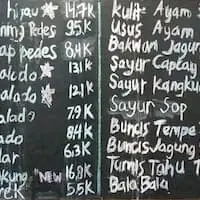 hijau 14.7K
ning Pedes 9.5K
ap pedes 8.4K
alado 13.1K
alado 12.1K
alado 7.9K
ado 8.4K
lar 6.3K
kung "NEW 16.8K
rek 5.5K
Kulit Ayam
Usus Ayam
Bakwan Jagun
Sayur Capcay
Sayur Kangkun
Sayur Sop
Buncis Tempe
Buncis Jagung
Tumis Tahu T
Bala Bala